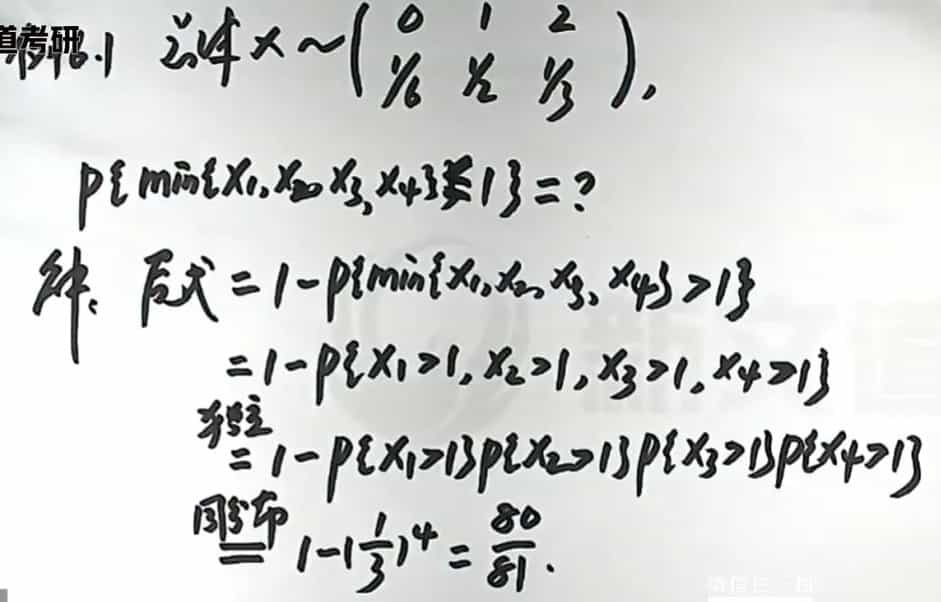 道考研
例6.1 总体X~(0 1 2
1/6 1/2 1/3),
P{min{X1,X2,X3,X4}≤1}=?
解: 原式=1-P{min{X1,X2,X3,X4}>1}
=1-P{X1>1,X2>1,X3>1,X4>1}
独立
=1-P{X1>1}P{X2>1}P{X3>1}P{X4>1}
同分布
=1-(1/3)^4=80/81.
新文道
微信扫一扫